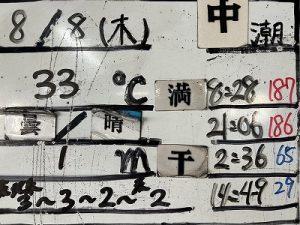 8/8(木) 中潮
33℃ 満 8=28 187
曇/晴 21=06 186
1m 干 2=36 65
14=49 29
3~3~2~2